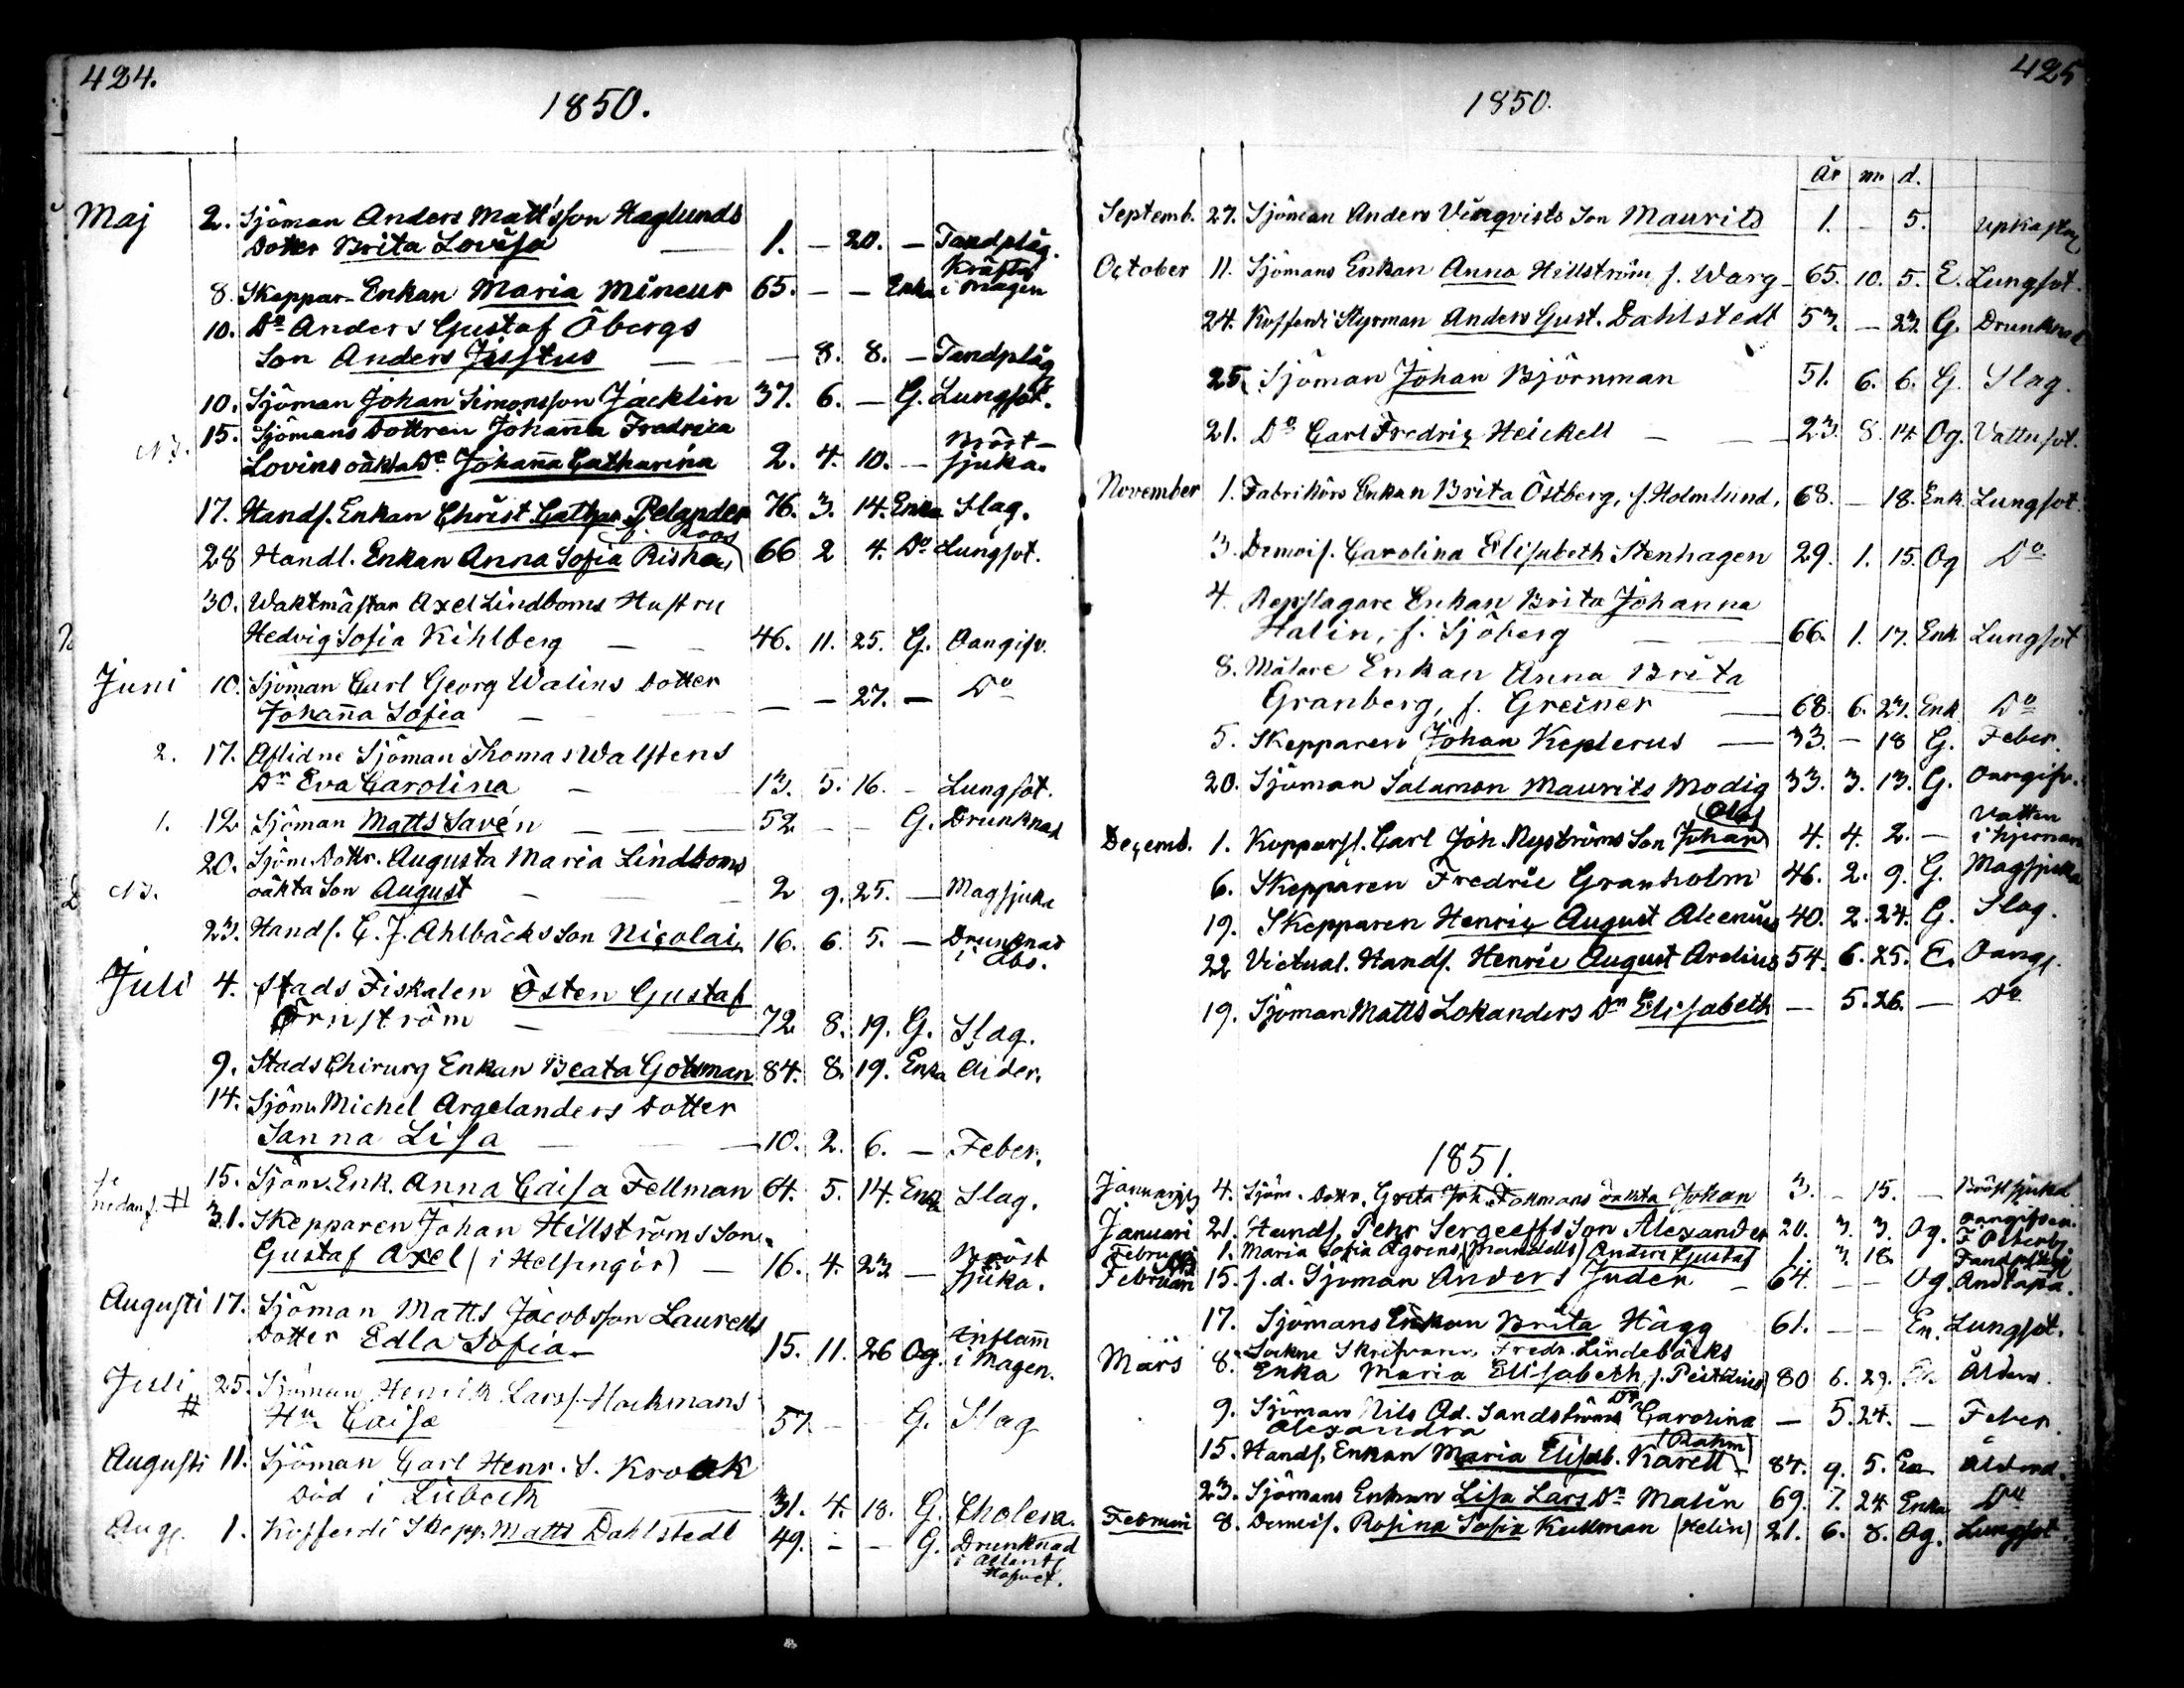 424.
1850.
Maj 2. Sjöman Anders Matts'son Haglunds
Dotter Brita Lovisa — 1. — 20. — Tandplåg.
Kräfta
8. Skeppar-Enkan Maria Mineur 65. — — Enka i Magen
10. Do Anders Gustaf Öbergs
Son Anders Justus — — 8. 8. — Tandplåg
10. Sjöman Johan Simonsson Jacklin 37. 6. — G. Lungsot.
15. Sjömans Dottren Johanna Fredrica Bröst-
Lovins oäkta Dr. Johanna Catharina 2. 4. 10. — sjuka.
17. Handl. Enkan Christ. Cathar. Pelander 76. 3. 14. Enka Slag.
f. Roos
28 Handl. Enkan Anna Sofia Riska 66 2 4. Do Lungsot.
30. Waktmästar Axel Lindboms Hustru
Hedvig Sofia Kihlberg — 46. 11. 25. G. Oangifv.
Juni 10. Sjöman Carl Georg Walins Dotter
Johanna Sofia — — — 27. — Do
2. 17. Aflidne Sjöman Thomas Walstens
Dr Eva Carolina — 13. 5. 16. - Lungsot.
1. 12 Sjöman Matts Savén — — — 52 — — G. Drunknad
20. Sjöm. Dottr. Augusta Maria Lindboms
oäkta Son August — 2 9. 25. — Magsjuka
23. Handl. C. J. Ahlbäcks Son Nicolai 16. 6. 5. — Drunknad
i Åbo.
Juli 4. Stads Fiskalen Östen Gustaf
Örnström — 72 8. 19. G. Slag.
9. Stads Chirurg Enkan Beata Gotsman 84. 8. 19. Enka Ålder.
14. Sjöm. Michel Argelanders Dotter
Sanna Lisa — 10. 2. 6. — Feber.
15. Sjöm. Enk. Anna Caisa Fellman 64. 5. 14. Enk Slag.
nedanf. #
31. Skepparen Johan Hillströms Son
Gustaf Axel (i Helsingör) — 16. 4. 23 — Bröst
sjuka.
Augusti 17. Sjöman Matts Jacobsson Laurells
Dotter Edla Sofia 15. 11. 26 Og. Inflam
i Magen.
Juli 25. Sjöman Henrik Larss. Hackmans
# Hu Caisa 57. — G. Slag
Augusti 11. Sjöman Carl Henr. S. Krook
Död i Lübeck 31. 4. 18. G. Cholera.
Aug. 1. Kofferdi Skepp. Matts Dahlstedt 49. - — G. Drunknad
i Atlant
Hafvet.
425
1850.
År m. d.
Septemb. 27. Sjöman Anders Vinqvists Son Maurits 1. — 5. upkastn
October 11. Sjömans Enkan Anna Hillström f. Warg 65. 10. 5. E. Lungsot.
24. Kofferdi Styrman Anders Gust. Dahlstedt 53. — 23 G. Drunknad
25. Sjöman Johan Björnman 51. 6. 6. G. Slag.
21. Do Carl Fredric Heickell — — 23. 8. 14 Og. Vattusot.
November 1. Fabrikörs Enkan Brita Östberg, f. Holmlund, 68. — 18. Enk. Lungsot.
3. Demois. Carolina Elisabeth Stenhagen 29. 1. 15. Og Do
4. Repslagare Enkan Brita Johanna
Halin, f. Sjöberg — 66. 1. 17. Enk Lungsot
8. Målare Enkan Anna Brita
Granberg, f. Greiner — 68. 6. 27. Enk Do
5. Skepparen Johan Keplerus — 33. — 18 G. Feber.
20. Sjöman Salamon Maurits Modig 33. 3. 13. G. Oangifv.
Olof Vatten
Decemb. 1. Kopparsl. Carl Joh. Nyströms Son Johan 4. 4. 2. — i hjernan
6. Skepparen Fredric Granholm 46. 2. 9. G. Magsjuka
19. Skepparen Henric August Alcenius 40. 2. 24. G. Slag.
22 Victual. Handl. Henric August Arelius 54. 6. 25. E. Oang.
19. Sjöman Matts Lokanders Dr Elisabeth — 5. 26. — Do
1851.
Januarij 4. Sjöm. Dottr. Greta Joh. oäkta Johan 3. — 15. — Bröstsjuka
Januari 21. Handl. Pehr Sergeeffs Son Alexander 20. 3. 3. Og. oangifven.
Februari 1. Maria Sofia Ågrens Anders Gustaf 1. 3. 18.
Februari 15. f.d. Sjöman Anders Juden — 64. — — Og. Andtäpa.
17. Sjömans Enkan Brita Hägg 61. — — En. Lungsot.
Sockne Skrifvaren Fredr. Lindebäcks
Mars 8. Enka Maria Elisabeth f. Peitzius 80 6. 29. En. Ålderd.
9. Sjöman Nils Ad. Sandströms Dr Carolina — 5. 24. — Feber
Alexandra
15. Handl. Enkan Maria Elisab. Karell (Rahm) 84. 9. 5. En Ålderd.
23. Sjömans Enkan Lisa Lars Dr Malin 69. 7. 24 Enka Do
Februari 8. Demois. Rosina Sofia Kullman (Helin) 21. 6. 8. Og. Lungsot.